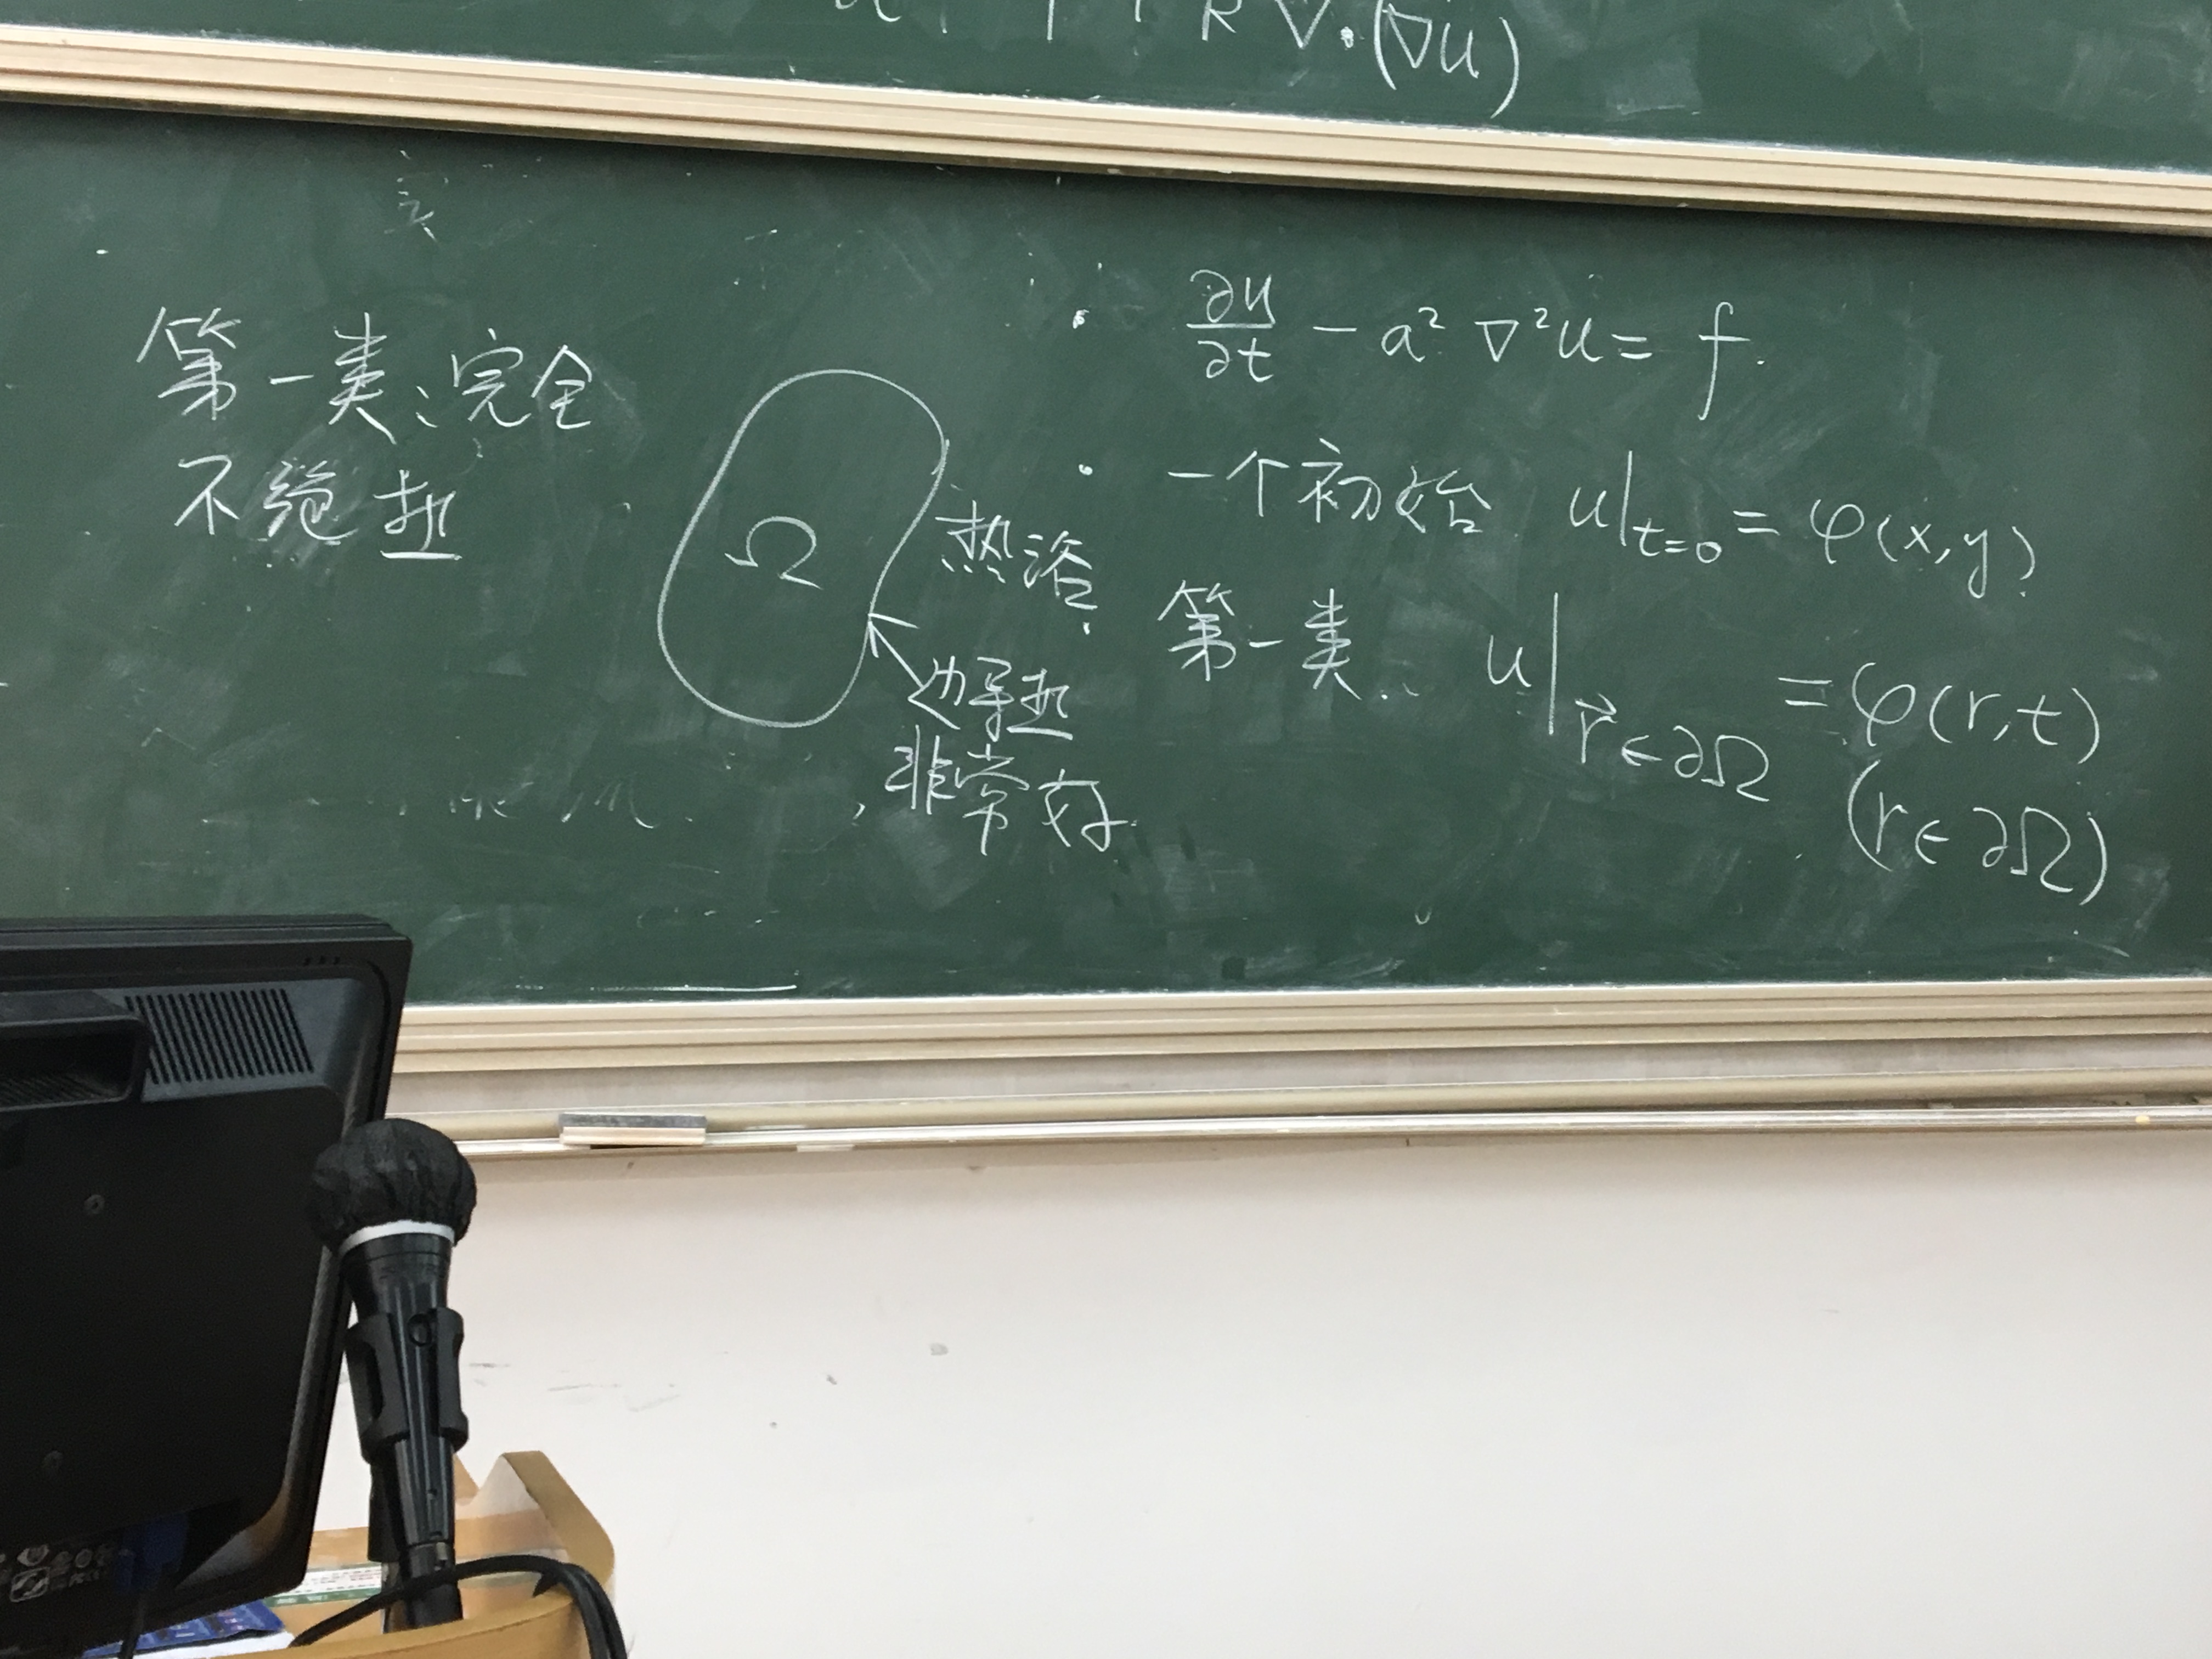 k∇·(∇u)
第一类:完全
不绝热
Ω
热浴
边导热
非常好
∂u/∂t - a² ∇²u = f.
· 一个初始 u|t=0 = φ(x,y)
第一类. u|r⃗∈∂Ω = φ(r,t)
(r∈∂Ω)